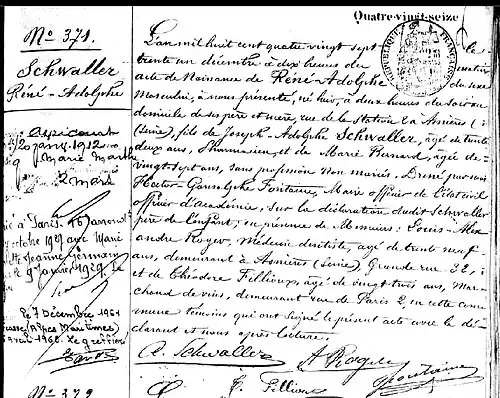 Quatre-vingt-seize
No 371.
Schwaller
René-Adolphe
20 janv. 1912
Marie Marthe
à Paris 16
octobre 1927 avec Marie
Jeanne Germain
9 Janvier 1929
Le 7 Décembre 1961
(Alpes Maritimes)
1962. Le greffier
L'an mil huit cent quatre vingt sept le
trente un décembre à dix heures du matin
acte de Naissance de René-Adolphe du sexe
Masculin, à nous présenté, né hier, à deux heures du soir au
domicile de ses père et mère, rue de la Station 2 à Asnières
(Seine), fils de Joseph-Adolphe Schwaller, agé de trente
deux ans, Pharmacien, et de Marie Bernard, agée de
vingt sept ans, sans profession non mariés. Dressé par nous
Hector-Gonsolphe Fontaine, Maire officier de l'état civil
officier d'académie, sur la déclaration dudit Schwaller
père de l'enfant, en présence de Messieurs: Louis-Alex-
andre Roger, Médecin dentiste, agé de trente neuf
ans, demeurant à Asnières (Seine), Grande rue 32,
et de Théodore Fillioux, agé de vingt trois ans, Mar-
chand de vins, demeurant rue de Paris 2, en cette com-
mune témoins qui ont signé le présent acte avec le dé-
clarant et nous après lecture.
A. Schwaller A Roger
Fontaine
T. Fillioux
No 372
REPUBLIQUE FRANÇAISE